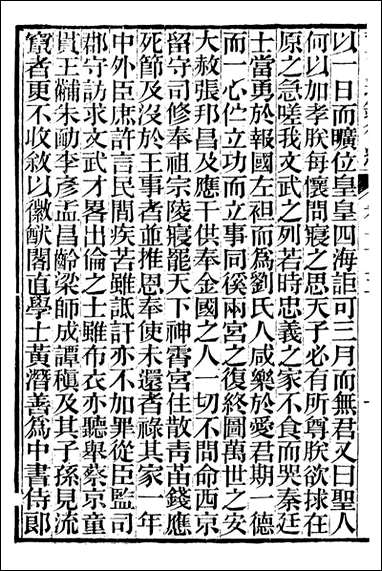 以一日而曠位皇皇四海詎可三月而無君又曰聖人
何以加孝朕每懷問寢之思天子必有所尊朕欲救在
原之急嗟我文武之列若時忠義之家不食而哭秦廷
士當勇於報國左袒而爲劉氏人咸樂於愛君期一德
而一心伫立功而立事同徯兩宮之復終圖萬世之安
大赦張邦昌及應干供奉金國之人一切不問命西京
留守司修奉祖宗陵寢罷天下神霄宮住散靑苗錢應
死節及沒於王事者並推恩奉使未還者祿其家一年
中外臣庶許言民間疾苦雖詆訐亦不加罪從臣監司
郡守訪求文武才畧出倫之士雖布衣亦聽舉蔡京童
貫王黼朱勔李彥孟昌齡梁師成譚稹及其子孫見流
竄者更不收敘以徽猷閣直學士黃潛善爲中書侍郞